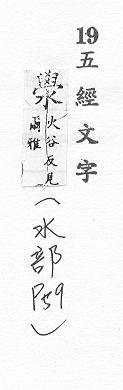 19五經文字
澩火谷反見
爾雅
(水部P59)